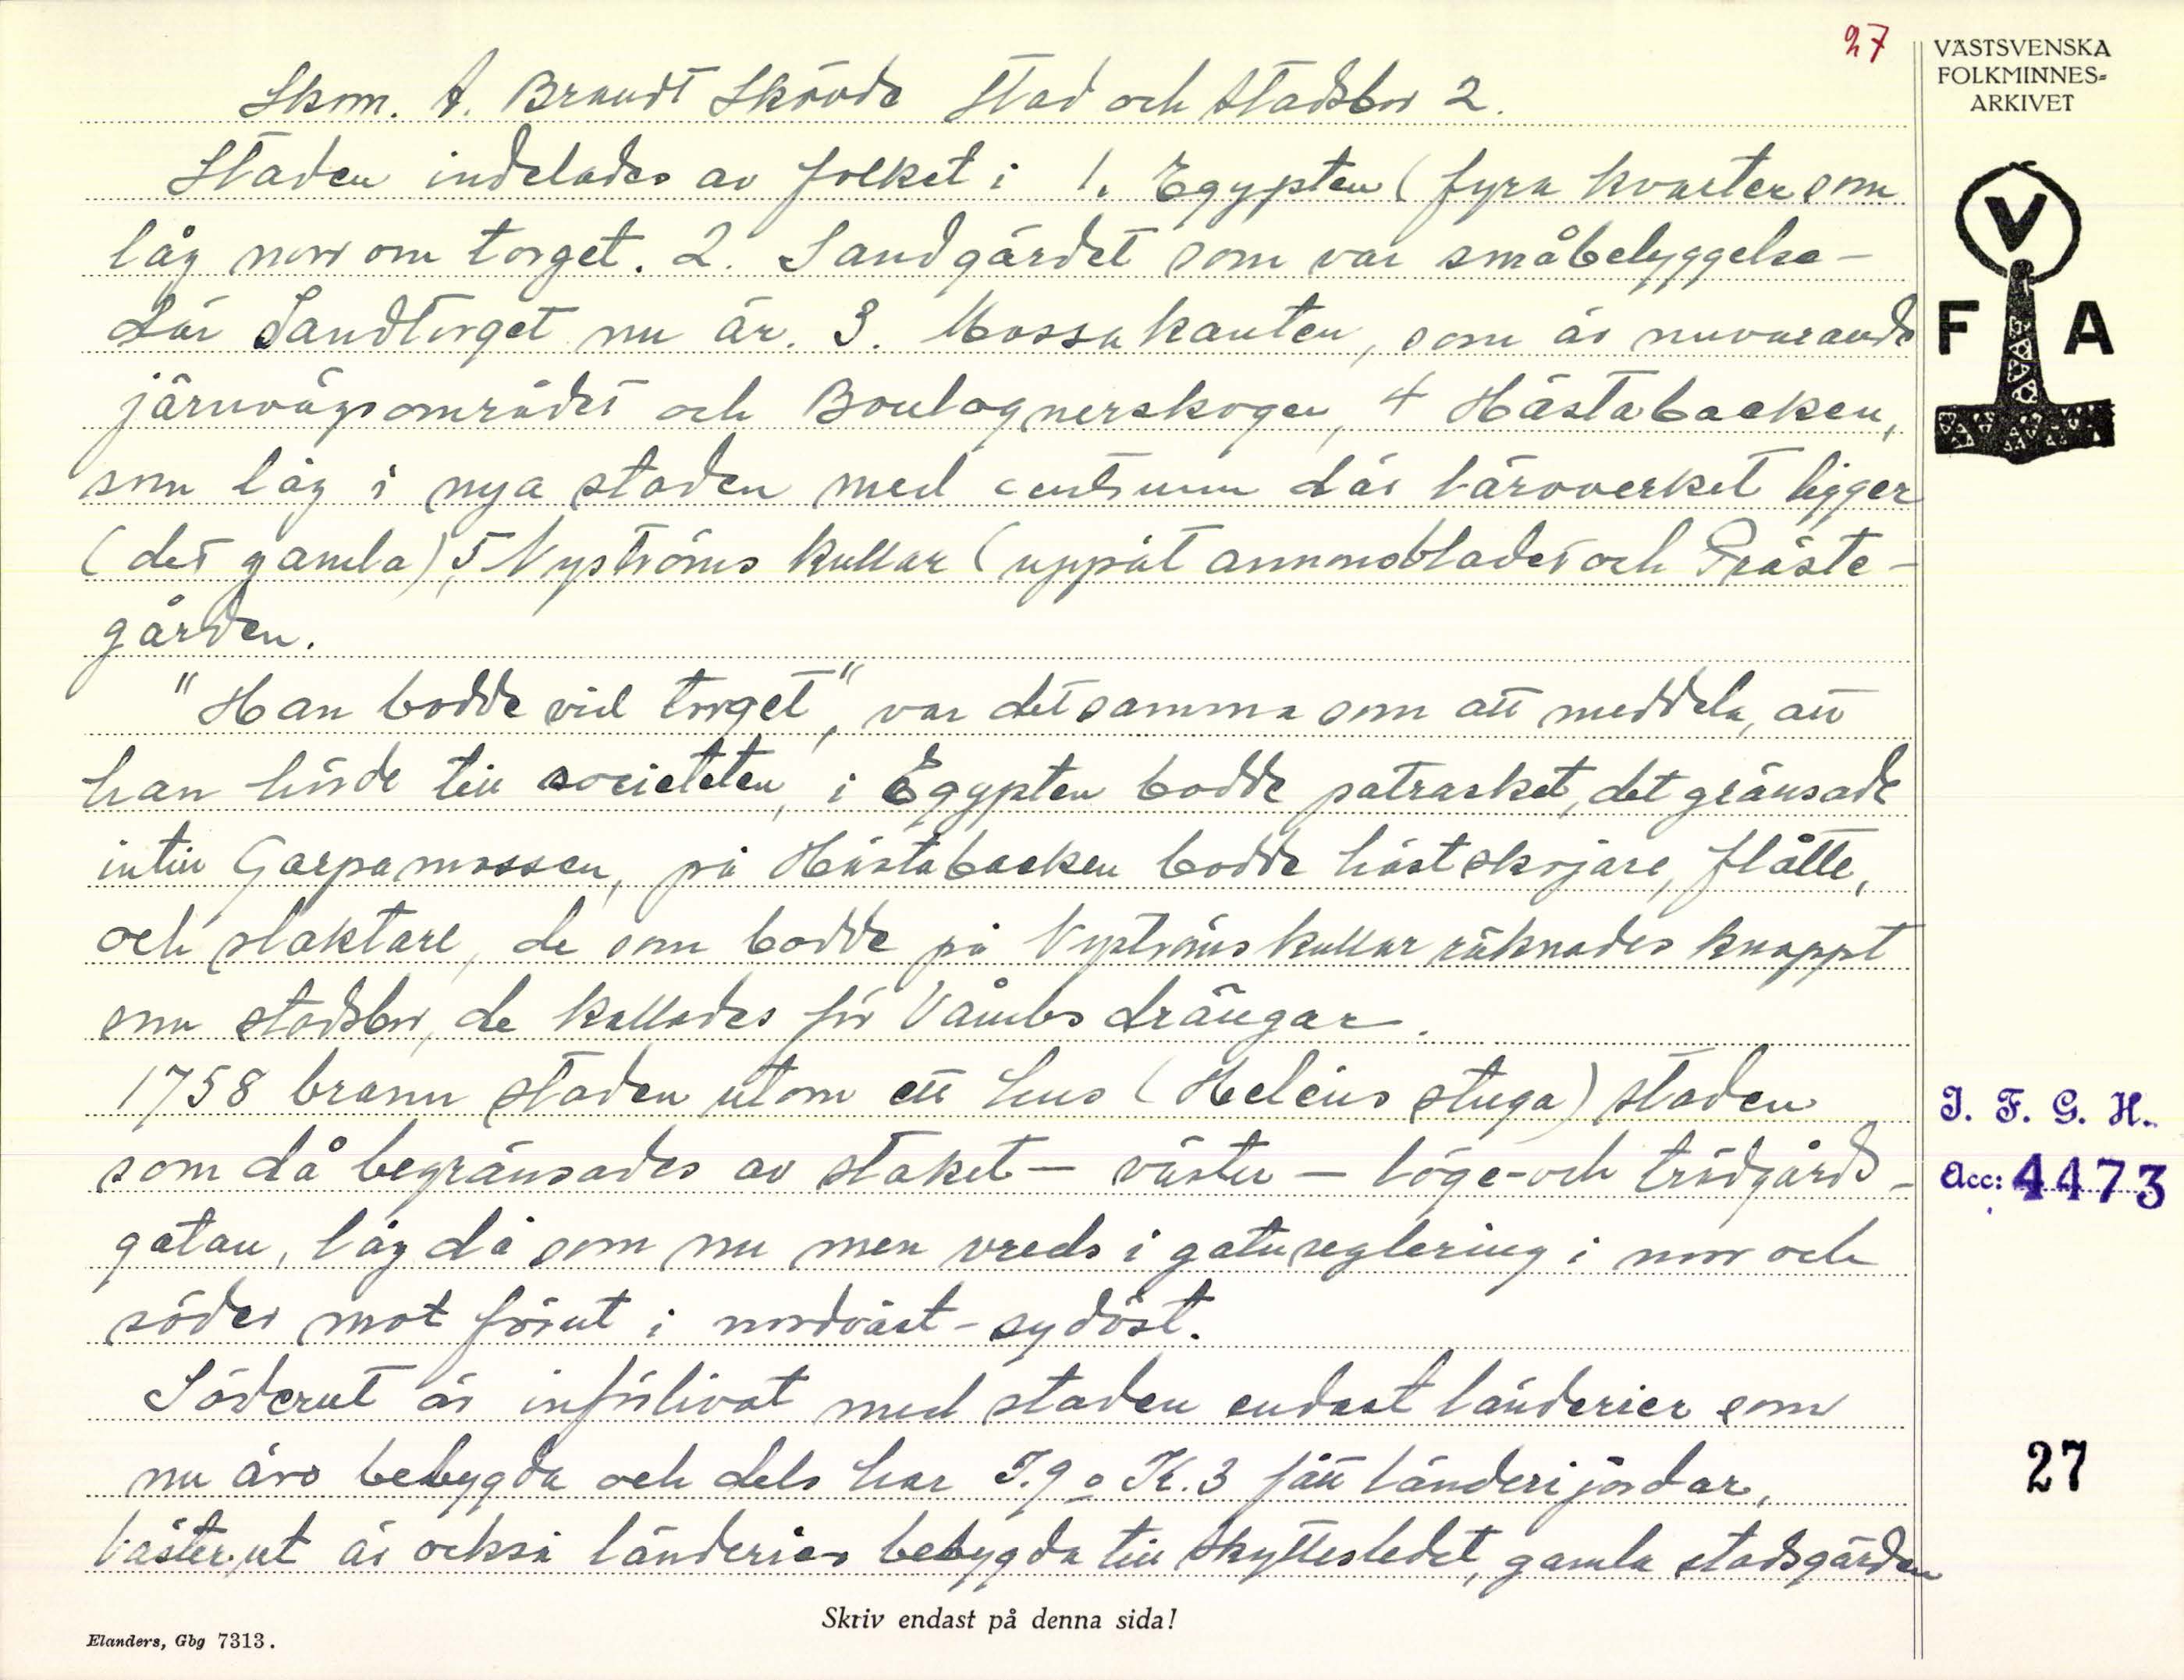 27
VÄSTSVENSKA
FOLKMINNES-
ARKIVET
Skom. A. Brandt Skövde Stad och stadsbor 2.
Staden indelades av folket i 1. Egypten (fyra kvarter som
låg norr om torget. 2. Sandgärdet som var småbebyggelse -
där Sandtorget nu är. 3. Mossakanten, som är nuvarande
järnvägsområdet och Boulognerskogen, 4 Hästabacken,
som låg i nya staden med centrum där läroverket ligger
(det gamla), 5 Nyströms kullar (uppåt annonsbladet och Präste-
gården.
"Han bodde vid torget", var detsamma som att meddela, att
han hörde till societeten, i Egypten bodde patrasket, det gränsade
intill Garpamossen, på Hästabacken bodde hästskojare, flåtte,
och slaktare, de som bodde på Nyströms kullar räknades knappt
som stadsbor, de kallades för Våmbs drängar.
1758 brann staden utom ett hus (Heléns stuga) staden
som då begränsades av staket - väster - löge- och trädgårds-
gatan, låg då som nu men vreds i gatureglering i norr och
söder mot förut i nordväst - sydöst.
Söderut är införlivat med staden endast länderier som
nu äro bebygda och dels har I.9 o K.3 fått länderijordar,
Västerut är också länderier bebygda till Skyttesledet, gamla stadsgården
V
F A
I. F. G. H.
Acc: 4473
27
Skriv endast på denna sida!
Elanders, Gbg 7313.